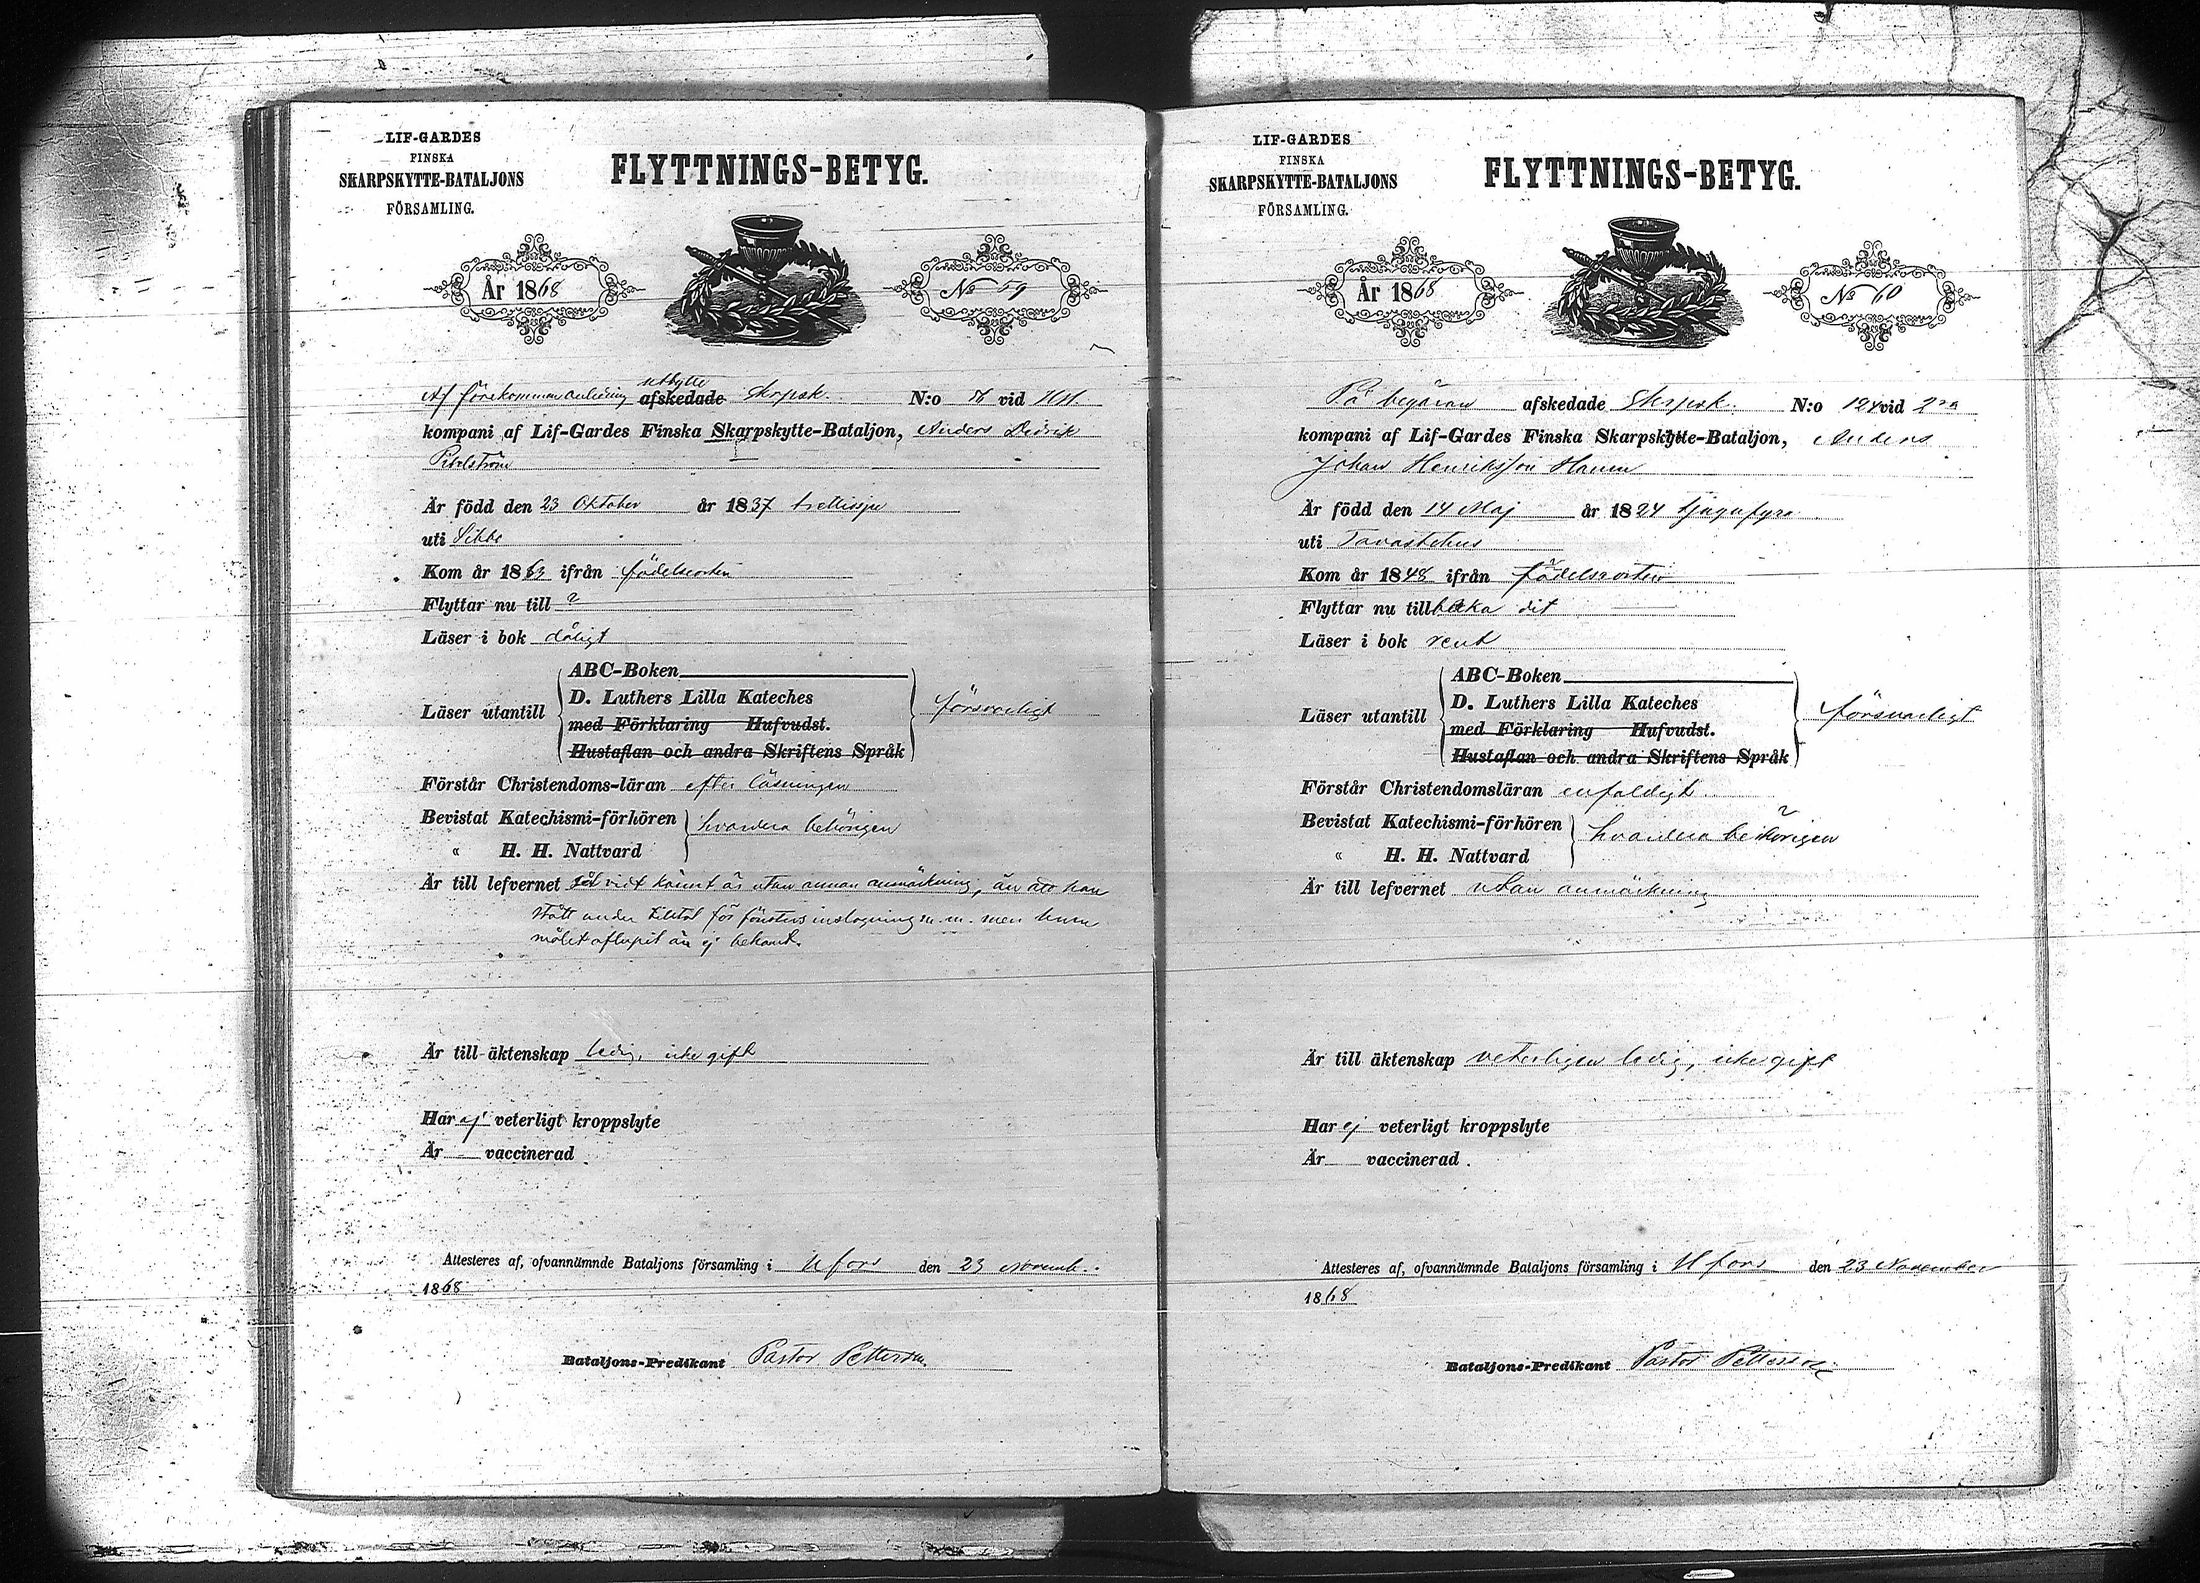 LIF-GARDES
FINSKA
SKARPSKYTTE-BATALJONS
FÖRSAMLING.
FLYTTNINGS-BETYG.
År 1868
No 59
utbytte
Af förekommen anledning afskedade Skrpsk. N:o vid
kompani af Lif-Gardes Finska Skarpskytte-Bataljon, Anders Didrik
Är född den 23 Oktober år 1837 trettisju
uti Sibbo
Kom år 1863 ifrån födelseorten
Flyttar nu till ?
Läser i bok dåligt
ABC-Boken
D. Luthers Lilla Kateches
Läser utantill försvarligt
med Förklaring Hufvudst.
Hustaflan och andra Skriftens Språk
Förstår Christendoms-läran efter läsningen
Bevistat Katechismi-förhören hvardera behörigen
" H. H. Nattvard
Är till lefvernet så vidt kännt är utan annan anmärkning, än att han
stått under tilltal för fönsters inslagning m.m. men huru
målet aflupit är ej bekant.
Är till äktenskap ledig, icke gift
Har ej veterligt kroppslyte
Är vaccinerad
Attesteres af, ofvannämnde Bataljons församling i Hfors den 23 Novemb.
1868
Bataljons-Predikant Pastor Petterson
LIF-GARDES
FINSKA
SKARPSKYTTE-BATALJONS
FÖRSAMLING.
FLYTTNINGS-BETYG.
År 1868
No 60
På begäran afskedade Skrpsk. N:o 124 vid 2ra
kompani af Lif-Gardes Finska Skarpskytte-Bataljon, Anders
Johan Henriksson
Är född den 14 Maj år 1824 tjugufyra
uti Tavastehus
Kom år 1848 ifrån födelseorten
Flyttar nu till baka dit
Läser i bok rent
ABC-Boken
D. Luthers Lilla Kateches
Läser utantill försvarligt
med Förklaring Hufvudst.
Hustaflan och andra Skriftens Språk
Förstår Christendomsläran enfaldigt
Bevistat Katechismi-förhören hvardera behörigen
" H. H. Nattvard
Är till lefvernet utan anmärkning
Är till äktenskap veterligen ledig, icke gift
Har ej veterligt kroppslyte
Är vaccinerad.
Attesteres af, ofvannämnde Bataljons församling i Hfors den 23 November
1868
Bataljons-Predikant Pastor Petterson